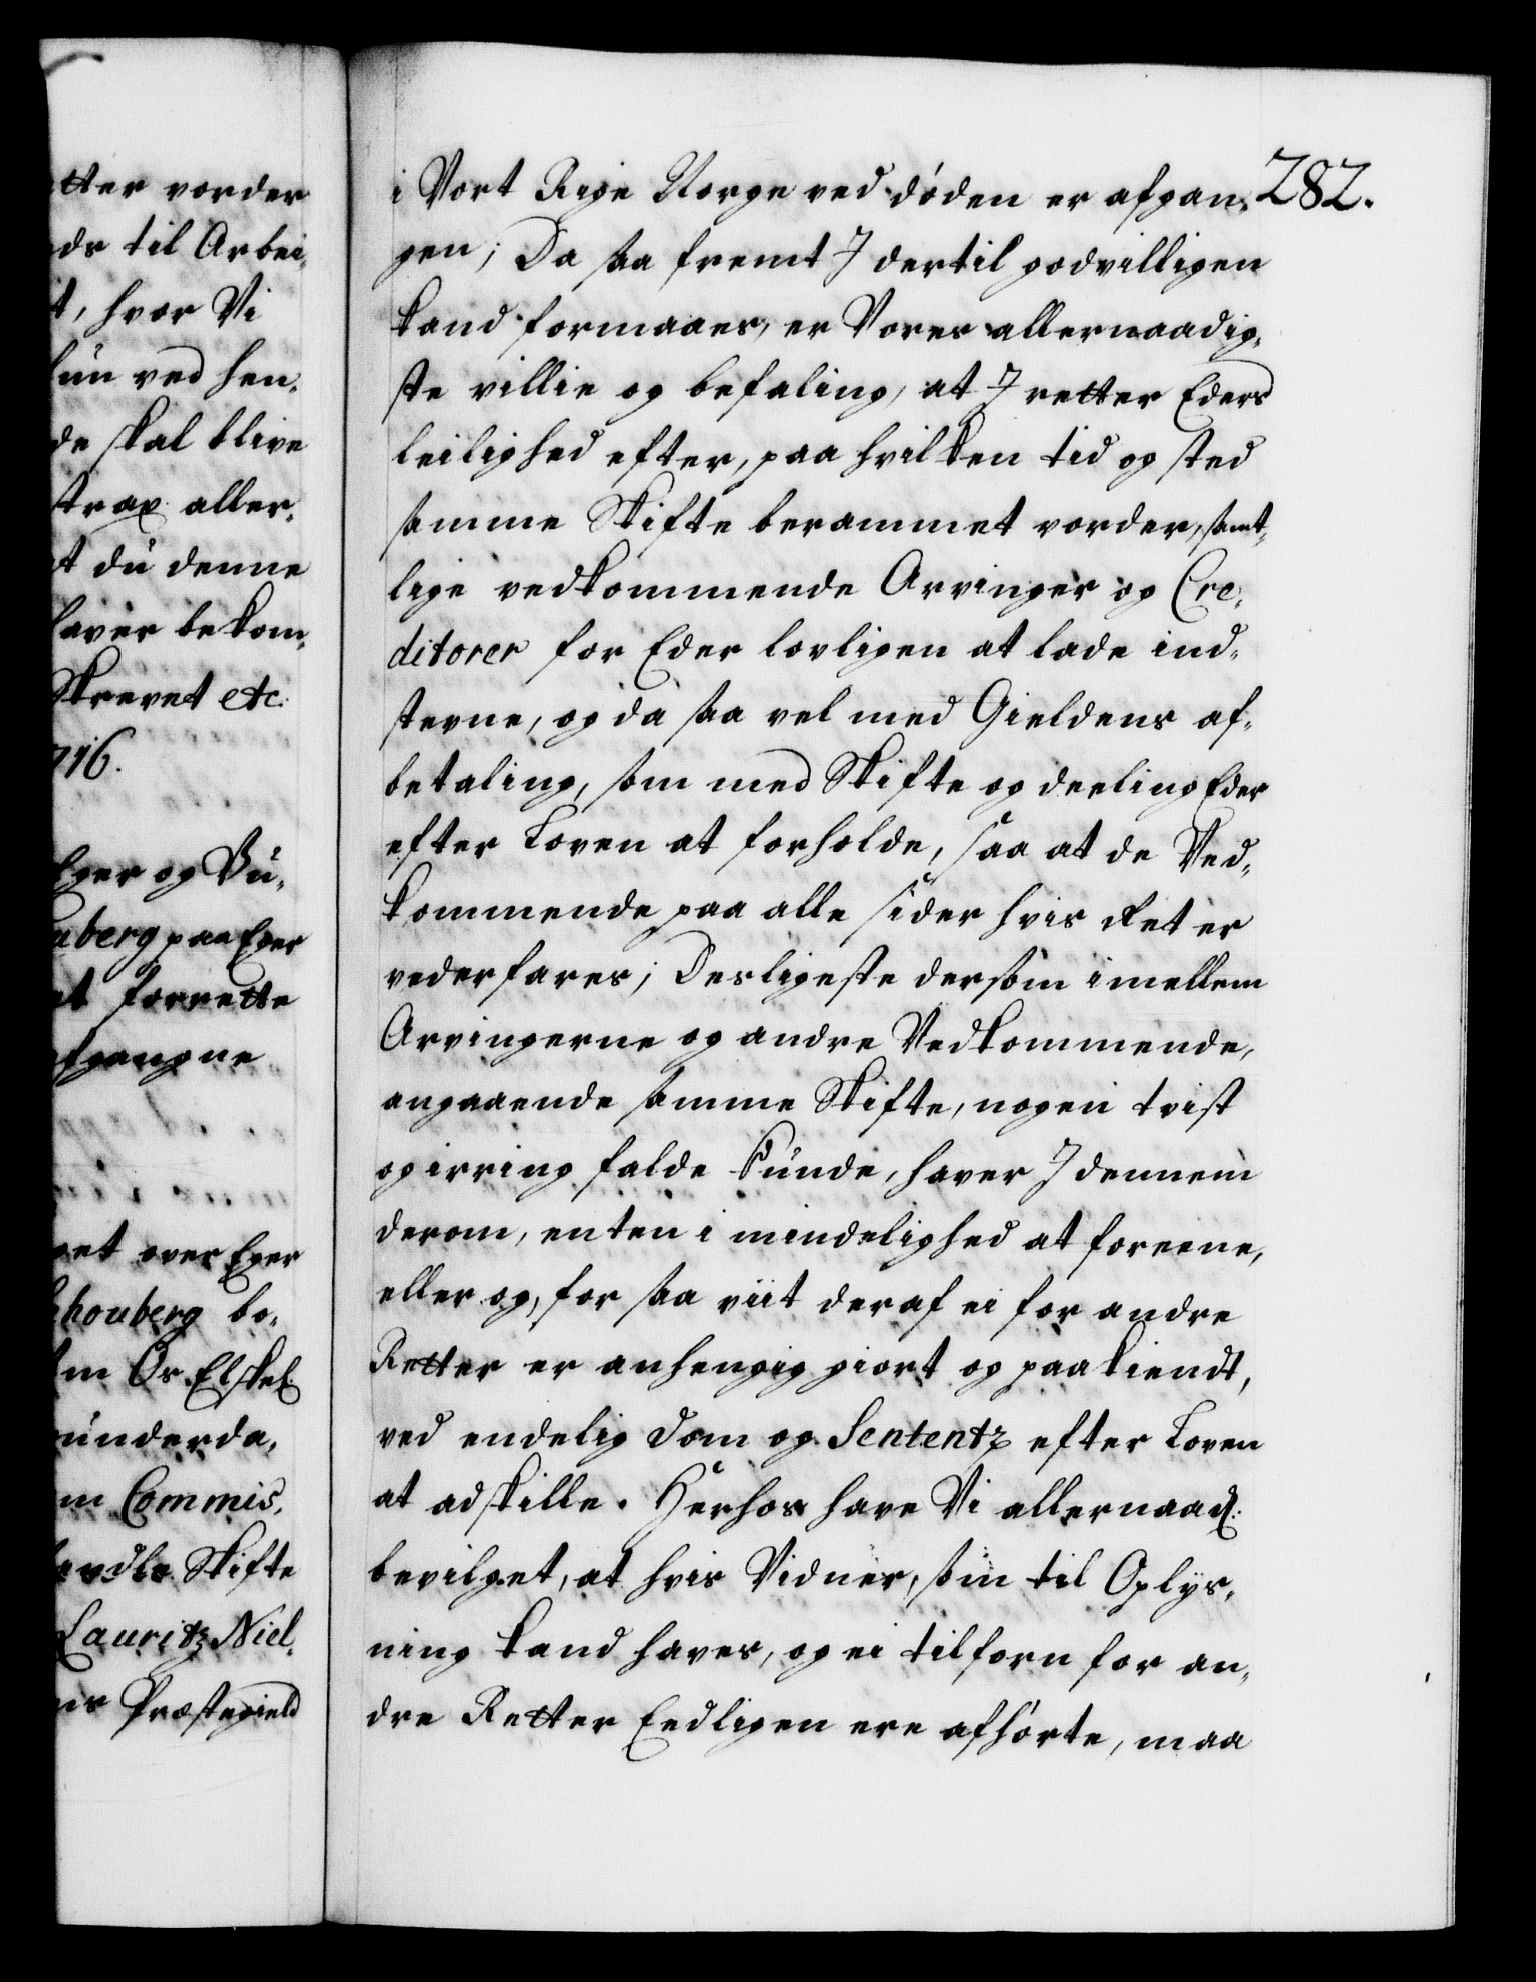 tter vorder
ds til Arbei-
t, hvor Vi
hun ved hen-
de skal blive
strax aller-
t du denne
haver bekom-
Skrevet etc.
716.
Eger og Bu-
uberg paa Eger
at forrette
afgangne
get over Eger
houberg bo-
m Os Elskel.
under da-
m Commis-
Skifte
Lauritz Niel-
ns Præstegield
282.
i Vort Rige Norge ved døden er afgan-
gen; Da saa fremt I dertil godvilligen
kand formaaes, er Vores allernaadig-
ste villie og befaling, at I retter Eders
leilighed efter, paa hvilken tid og sted
samme Skifte berammet vorder, samt-
lige vedkommende Arvinger og Cre-
ditorer for Eder lovligen at lade ind-
stevne, og da saa vel med Gieldens af-
betaling, som med Skifte og deeling Eder
efter Loven at forholde, saa at de Ved-
kommende paa alle sider hvis Ret er
vederfares; Desligeste dersom imellem
Arvingerne og andre Vedkommende,
angaaende samme Skifte, nogen trist
og irring falde kunde, haver I dennem
derom, enten i mindelighed at foreene,
eller og, for saa viit deraf ei for andre
Retter er anhengig giort og paakiendt,
ved endelig dom og Sententz efter Loven
at adskille. Herhos have Vi allernaad:
bevilget, at hvis Vidner, som til Oplys-
ning kand haves, og ei tilforn for an-
dre Retter Eedligen ere afhørte, maa